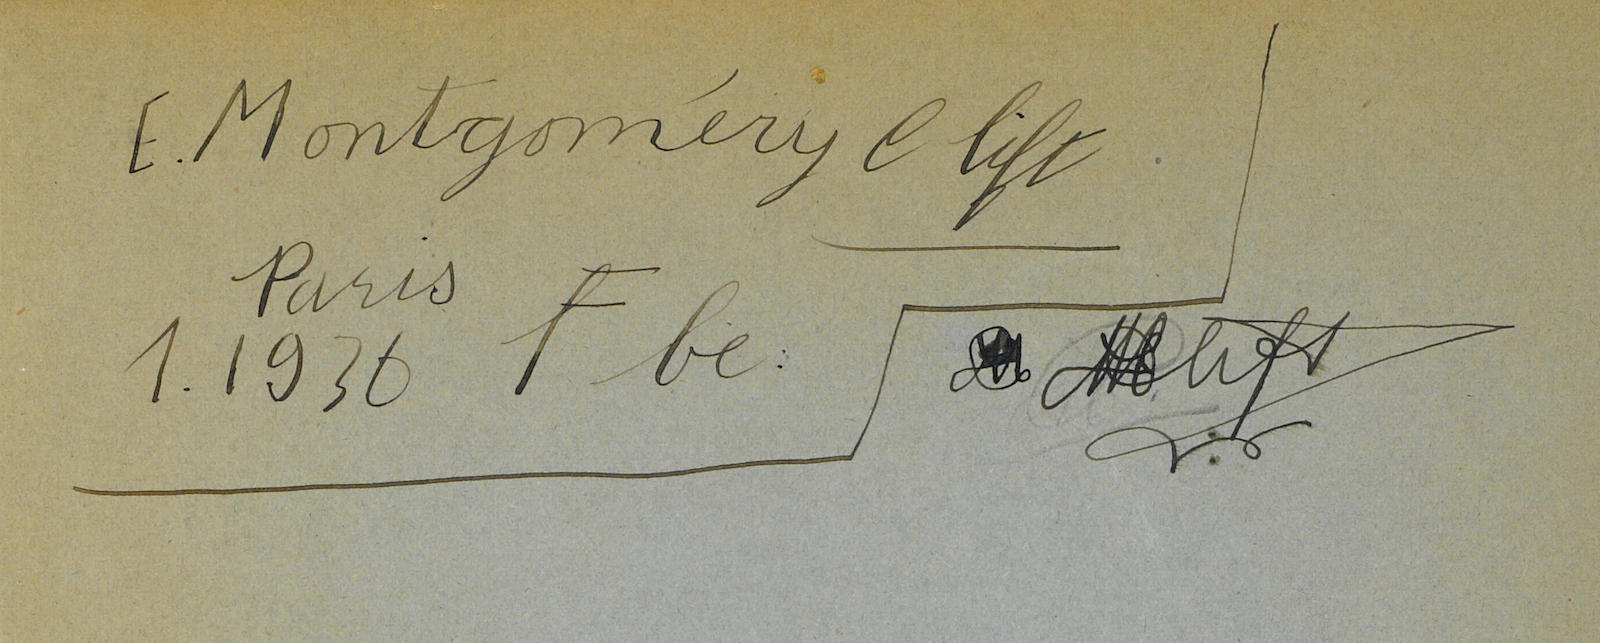 E. Montgoméry Clift
Paris
1. 1936 F be:
Clift